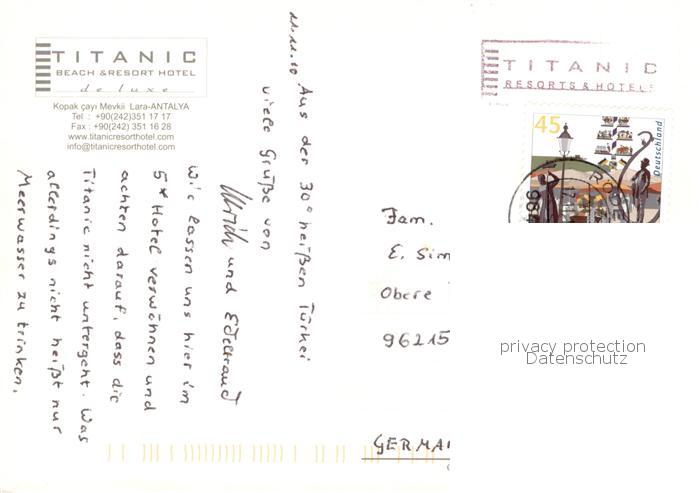 TITANIC
BEACH & RESORT HOTEL
de luxe
Kopak çayı Mevkii Lara-ANTALYA
Tel : +90(242)351 17 17
Fax : +90(242)351 16 28
www.titanicresorthotel.com
info@titanicresorthotel.com
11.11.10
Aus der 30° heißen Türkei
viele Grüße von
Ulrich und Edeltraud
Wir lassen uns hier im
5* Hotel verwöhnen und
achten darauf, dass die
Titanic nicht untergeht. Was
allerdings nicht heißt nur
Meerwasser zu trinken.
TITANIC
RESORTS & HOTELS
45
Deutschland
Fam.
E. Sim
Obere
96215
GERMA
privacy protection
Datenschutz